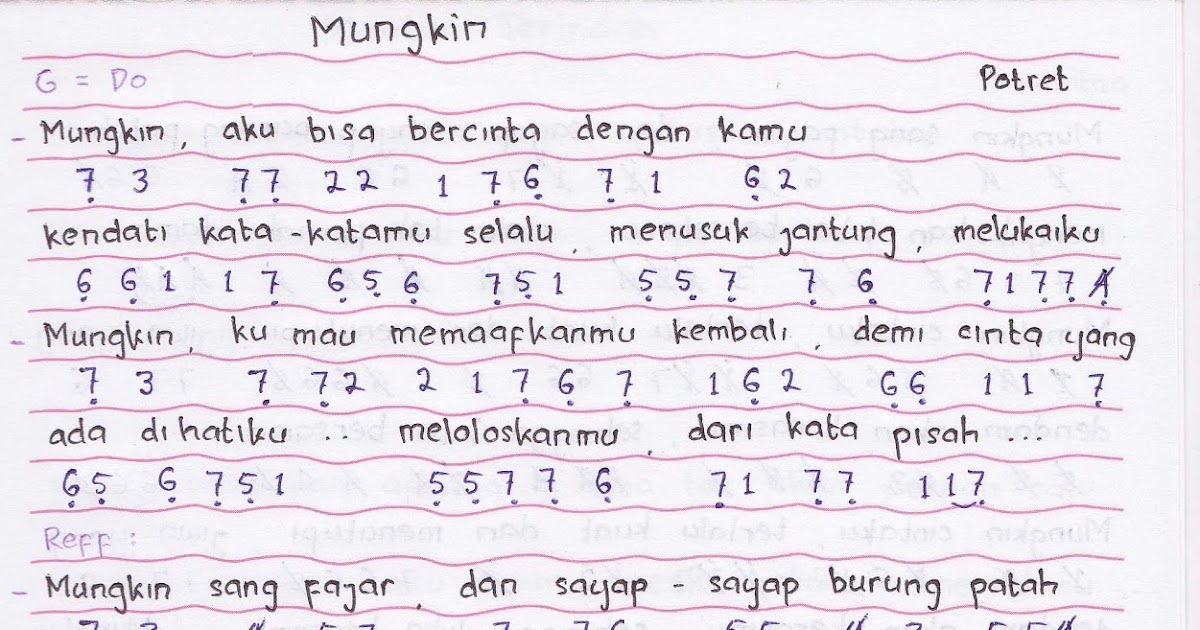 Mungkin
G = Do Potret
- Mungkin, aku bisa bercinta dengan kamu
7̣ 3 7̣ 7̣ 2 2 1 7̣ 6̣ 7̣ 1 6̣ 2
kendati kata katamu selalu, menusuk jantung, melukaiku
6̣ 6̣ 1 1 7̣ 6̣ 5̣ 6̣ 7̣ 5̣ 1 5̣ 5̣ 7̣ 7̣ 6̣ 7̣ 1 7̣ 7̣ 4̸
- Mungkin, ku mau memaafkanmu kembali, demi cinta yang
7̣ 3 7̣ 7̣ 2 2 1 7̣ 6̣ 7̣ 1 6̣ 2 6̣ 6̣ 1 1 7̣
ada dihatiku ... meloloskanmu, dari kata pisah ...
6̣ 5̣ 6̣ 7̣ 5̣ 1 5̣ 5̣ 7̣ 7̣ 6̣ 7̣ 1 7̣ 7̣ 1 1 7̣
Reff :
- Mungkin sang fajar, dan sayap - sayap burung patah